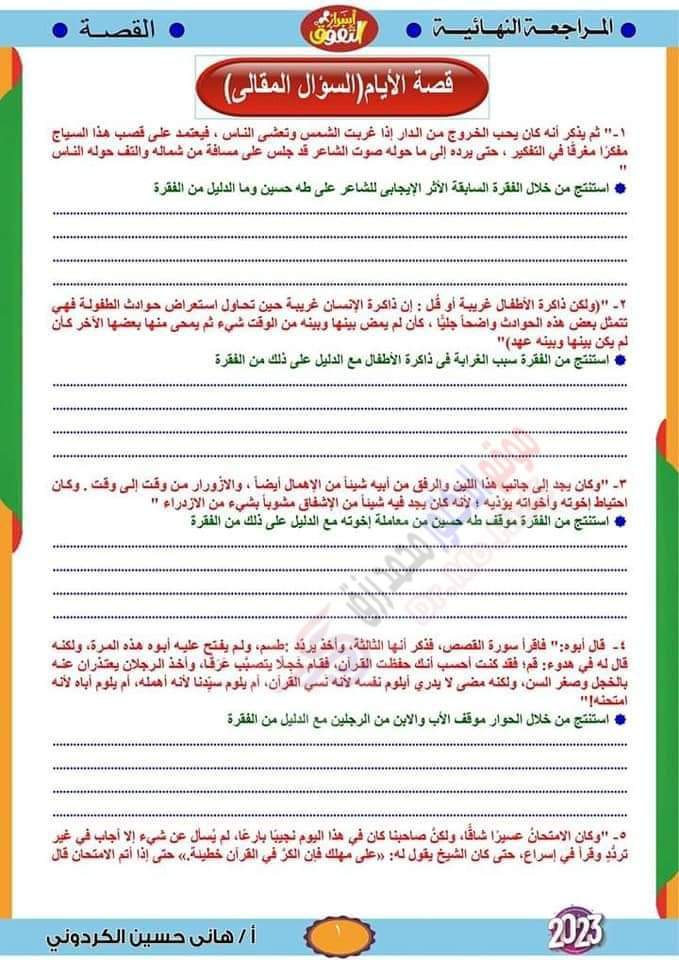 المراجعة النهائية
أسرار التفوق
القصة
قصة الأيام(السؤال المقالى)
١- " ثم يذكر أنه كان يحب الخروج من الدار إذا غربت الشمس وتعشى الناس ، فيعتمد على قصب هذا السياج
مفكرًا مغرقًا في التفكير ، حتى يرده إلى ما حوله صوت الشاعر قد جلس على مسافة من شماله والتف حوله الناس
"
استنتج من خلال الفقرة السابقة الأثر الإيجابى للشاعر على طه حسين وما الدليل من الفقرة
٢- "(ولكن ذاكرة الأطفال غريبة أو قُل : إن ذاكرة الإنسان غريبة حين تحاول استعراض حوادث الطفولة فهي
تتمثل بعض هذه الحوادث واضحاً جليًّا ، كأن لم يمض بينها وبينه من الوقت شيء ثم يمحى منها بعضها الآخر كأن
لم يكن بينها وبينه عهد)"
استنتج من الفقرة سبب الغرابة فى ذاكرة الأطفال مع الدليل على ذلك من الفقرة
٣- "وكان يجد إلى جانب هذا اللين والرفق من أبيه شيئاً من الإهمال أيضاً ، والازورار من وقت إلى وقت . وكان
احتياط إخوته وأخواته يؤذيه ؛ لأنه كان يجد فيه شيئاً من الإشفاق مشوباً بشيء من الازدراء "
استنتج من الفقرة موقف طه حسين من معاملة إخوته مع الدليل على ذلك من الفقرة
٤- قال أبوه:" فاقرأ سورة القصص، فذكر أنها الثالثة، وأخذ يردِّد :طسم، ولم يفتح عليه أبوه هذه المرة، ولكنه
قال له في هدوء: قم؛ فقد كنت أحسب أنك حفظت القرآن، فقام خَجِلًا يتصبَّب عَرَقًا، وأخذ الرجلان يعتذران عنه
بالخجل وصغر السن، ولكنه مضى لا يدري أيلوم نفسه لأنه نسي القرآن، أم يلوم سيِّدنا لأنه أهمله، أم يلوم أباه لأنه
امتحنه!"
استنتج من خلال الحوار موقف الأب والابن من الرجلين مع الدليل من الفقرة
٥- "وكان الامتحانُ عسيرًا شاقًّا، ولكنَّ صاحبنا كان في هذا اليوم نجيبًا بارعًا، لم يُسأل عن شيء إلا أجاب في غير
تردُّدٍ وقرأ في إسراع، حتى كان الشيخ يقول له: «على مهلك فإن الكرَّ في القرآن خطيئة.» حتى إذا أتم الامتحان قال
2023
١
أ/ هانى حسين الكردوني